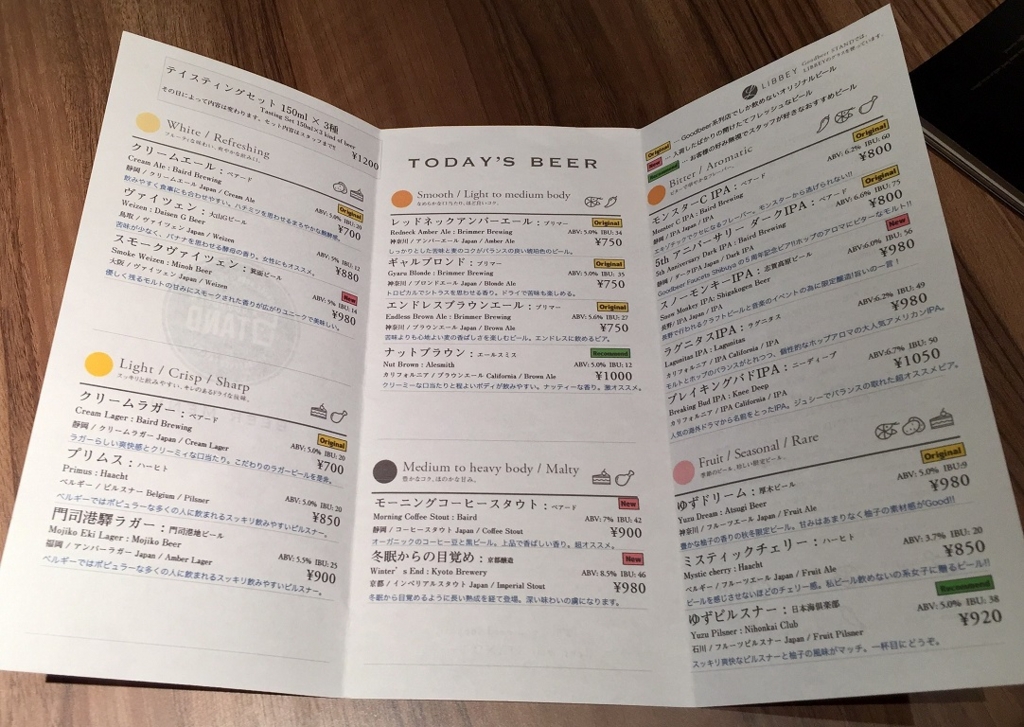 テイスティングセット 150ml × 3種
Tasting Set 150ml×3 kind of beer
その日によって内容は変わります。セット内容はスタッフまで
¥1200
White / Refreshing
フルーティな味わい、爽やかな飲み心地。
クリームエール：ベアード
Cream Ale : Baird Brewing
Original
静岡 / クリームエール Japan / Cream Ale
ABV: 5.0% IBU: 20
飲みやすく食事にも合わせやすい。ハチミツを思わせるまろやかな新鮮感。
¥700
ヴァイツェン：大山Gビール
Weizen : Daisen G Beer
鳥取 / ヴァイツェン Japan / Weizen
ABV: 5% IBU: 12
苦味が少なく、バナナを思わせる酵母の香り。女性にもオススメ。
¥880
スモークヴァイツェン：箕面ビール
Smoke Weizen : Minoh Beer
New
大阪 / ヴァイツェン Japan / Weizen
ABV: 5% IBU: 14
優しく残るモルトの甘みにスモークされた香りが広がりユニークで美味しい。
¥980
Light / Crisp / Sharp
スッキリと飲みやすい、キレのあるドライな後味。
クリームラガー：ベアード
Cream Lager : Baird Brewing
Original
静岡 / クリームラガー Japan / Cream Lager
ABV: 5.0% IBU: 20
ラガーらしい爽快感とクリーミィな口当たり。こだわりのラガービールを是非。
¥700
プリムス：ハーヒト
Primus : Haacht
ベルギー / ピルスナー Belgium / Pilsner
ABV: 5.0% IBU: 20
ベルギーではポピュラーな多くの人に飲まれるスッキリ飲みやすいピルスナー。
¥850
門司港驛ラガー：門司港地ビール
Mojiko Eki Lager : Mojiko Beer
福岡 / アンバーラガー Japan / Amber Lager
ABV: 5.5% IBU: 25
¥900
ベルギーではポピュラーな多くの人に飲まれるスッキリ飲みやすいピルスナー。
TODAY'S BEER
Smooth / Light to medium body
なめらかな口当たり、ほど良いコク。
レッドネックアンバーエール：ブリマー
Original
Redneck Amber Ale : Brimmer Brewing
ABV: 5.0% IBU: 34
神奈川 / アンバーエール Japan / Amber Ale
¥750
しっかりとした苦味と麦のコクがバランスの良い琥珀色のビール。
ギャルブロンド：ブリマー
Original
Gyaru Blonde : Brimmer Brewing
ABV: 5.0% IBU: 35
神奈川 / ブロンドエール Japan / Blonde Ale
¥750
トロピカルでシトラスを思わせる香り。ドライで苦味も楽しめる。
エンドレスブラウンエール：ブリマー
Original
Endless Brown Ale : Brimmer Brewing
ABV: 5.6% IBU: 27
神奈川 / ブラウンエール Japan / Brown Ale
¥750
苦味よりも心地よい麦の香ばしさを楽しむビール。エンドレスに飲めるビア。
ナットブラウン：エールスミス
Recommend
Nut Brown : Alesmith
ABV: 5.0% IBU: 12
カリフォルニア / ブラウンエール California / Brown Ale
¥1000
クリーミーな口当たりと程よいボディが飲みやすい。ナッティーな香り。激オススメ。
Medium to heavy body / Malty
豊かなコク、ほのかな甘み。
モーニングコーヒースタウト：ベアード
New
Morning Coffee Stout : Baird
ABV: 7% IBU: 42
静岡 / コーヒースタウト Japan / Coffee Stout
¥900
オーガニックのコーヒー豆と黒ビール。上品で香ばしい香り。超オススメ。
冬眠からの目覚め：京都醸造
New
Winter's End : Kyoto Brewery
ABV: 8.5% IBU: 46
京都 / インペリアルスタウト Japan / Imperial Stout
¥980
冬眠から目覚めるように長い熟成を経て登場。深い味わいの虜になります。
LIBBEY
Goodbeer STANDでは、
LIBBEYのグラスを使っています。
Original
Goodbeer系列店でしか飲めないオリジナルビール
New
入荷したばかりの開けたてフレッシュなビール
Recommend
お客様の好み無視でスタッフが好きなおすすめビール
Bitter / Aromatic
モンスターC IPA：ベアード
Original
Monster C IPA : Baird Brewing
ABV: 6.2% IBU: 60
静岡 / IPA Japan / IPA
¥800
エキゾチックでクセになるフレーバー。モンスターから逃げられない!!
5th アニバーサリー ダークIPA：ベアード
Original
5th Anniversary Dark IPA : Baird Brewing
ABV: 6.6% IBU: 75
静岡 / ダークIPA Japan / Dark IPA
¥800
Goodbeer Faucets Shibuya の5周年記念ビア!!ホップのアロマにビターなモルト!!
スノーモンキーIPA：志賀高原ビール
New
Snow Monkey IPA: Shigakogen Beer
ABV:6.0% IBU: 56
長野/ IPA Japan / IPA
¥980
長野で行われるクラフトビールと音楽のイベントの為に限定醸造!旨いの一言！
ラグニタスIPA：ラグニタス
Lagunitas IPA : Lagunitas
ABV:6.2% IBU: 49
カリフォルニア / IPA California / IPA
¥980
モルトとホップのバランスがとれつつ、個性的なホップアロマの大人気アメリカンIPA。
ブレイキングバドIPA：ニーディープ
Breaking Bud IPA : Knee Deep
ABV:6.7% IBU: 50
カリフォルニア / IPA California / IPA
¥1050
人気の海外ドラマから名前をとったIPA。ジューシーでバランスの取れた超オススメビア。
Fruit / Seasonal / Rare
季節のビール、珍しい限定ビール。
ゆずドリーム：厚木ビール
Original
Yuzu Dream : Atsugi Beer
ABV: 5.0% IBU:9
神奈川 / フルーツエール Japan / Fruit Ale
¥980
豊かな柚子の香りの秋冬限定ビール。甘みはあまりなく柚子の素材感がGood!!
ミスティックチェリー：ハーヒト
Mystic cherry : Haacht
ABV: 3.7% IBU: 20
ベルギー / フルーツエール Japan / Fruit Ale
¥850
ビールを感じさせないほどのチェリー感。私ビール飲めないの系女子に贈るビール!!
ゆずピルスナー：日本海倶楽部
Recommend
Yuzu Pilsner : Nihonkai Club
ABV: 5.0% IBU: 38
石川 / フルーツピルスナー Japan / Fruit Pilsner
¥920
スッキリ爽快なピルスナーと柚子の風味がマッチ。一杯目にどうぞ。